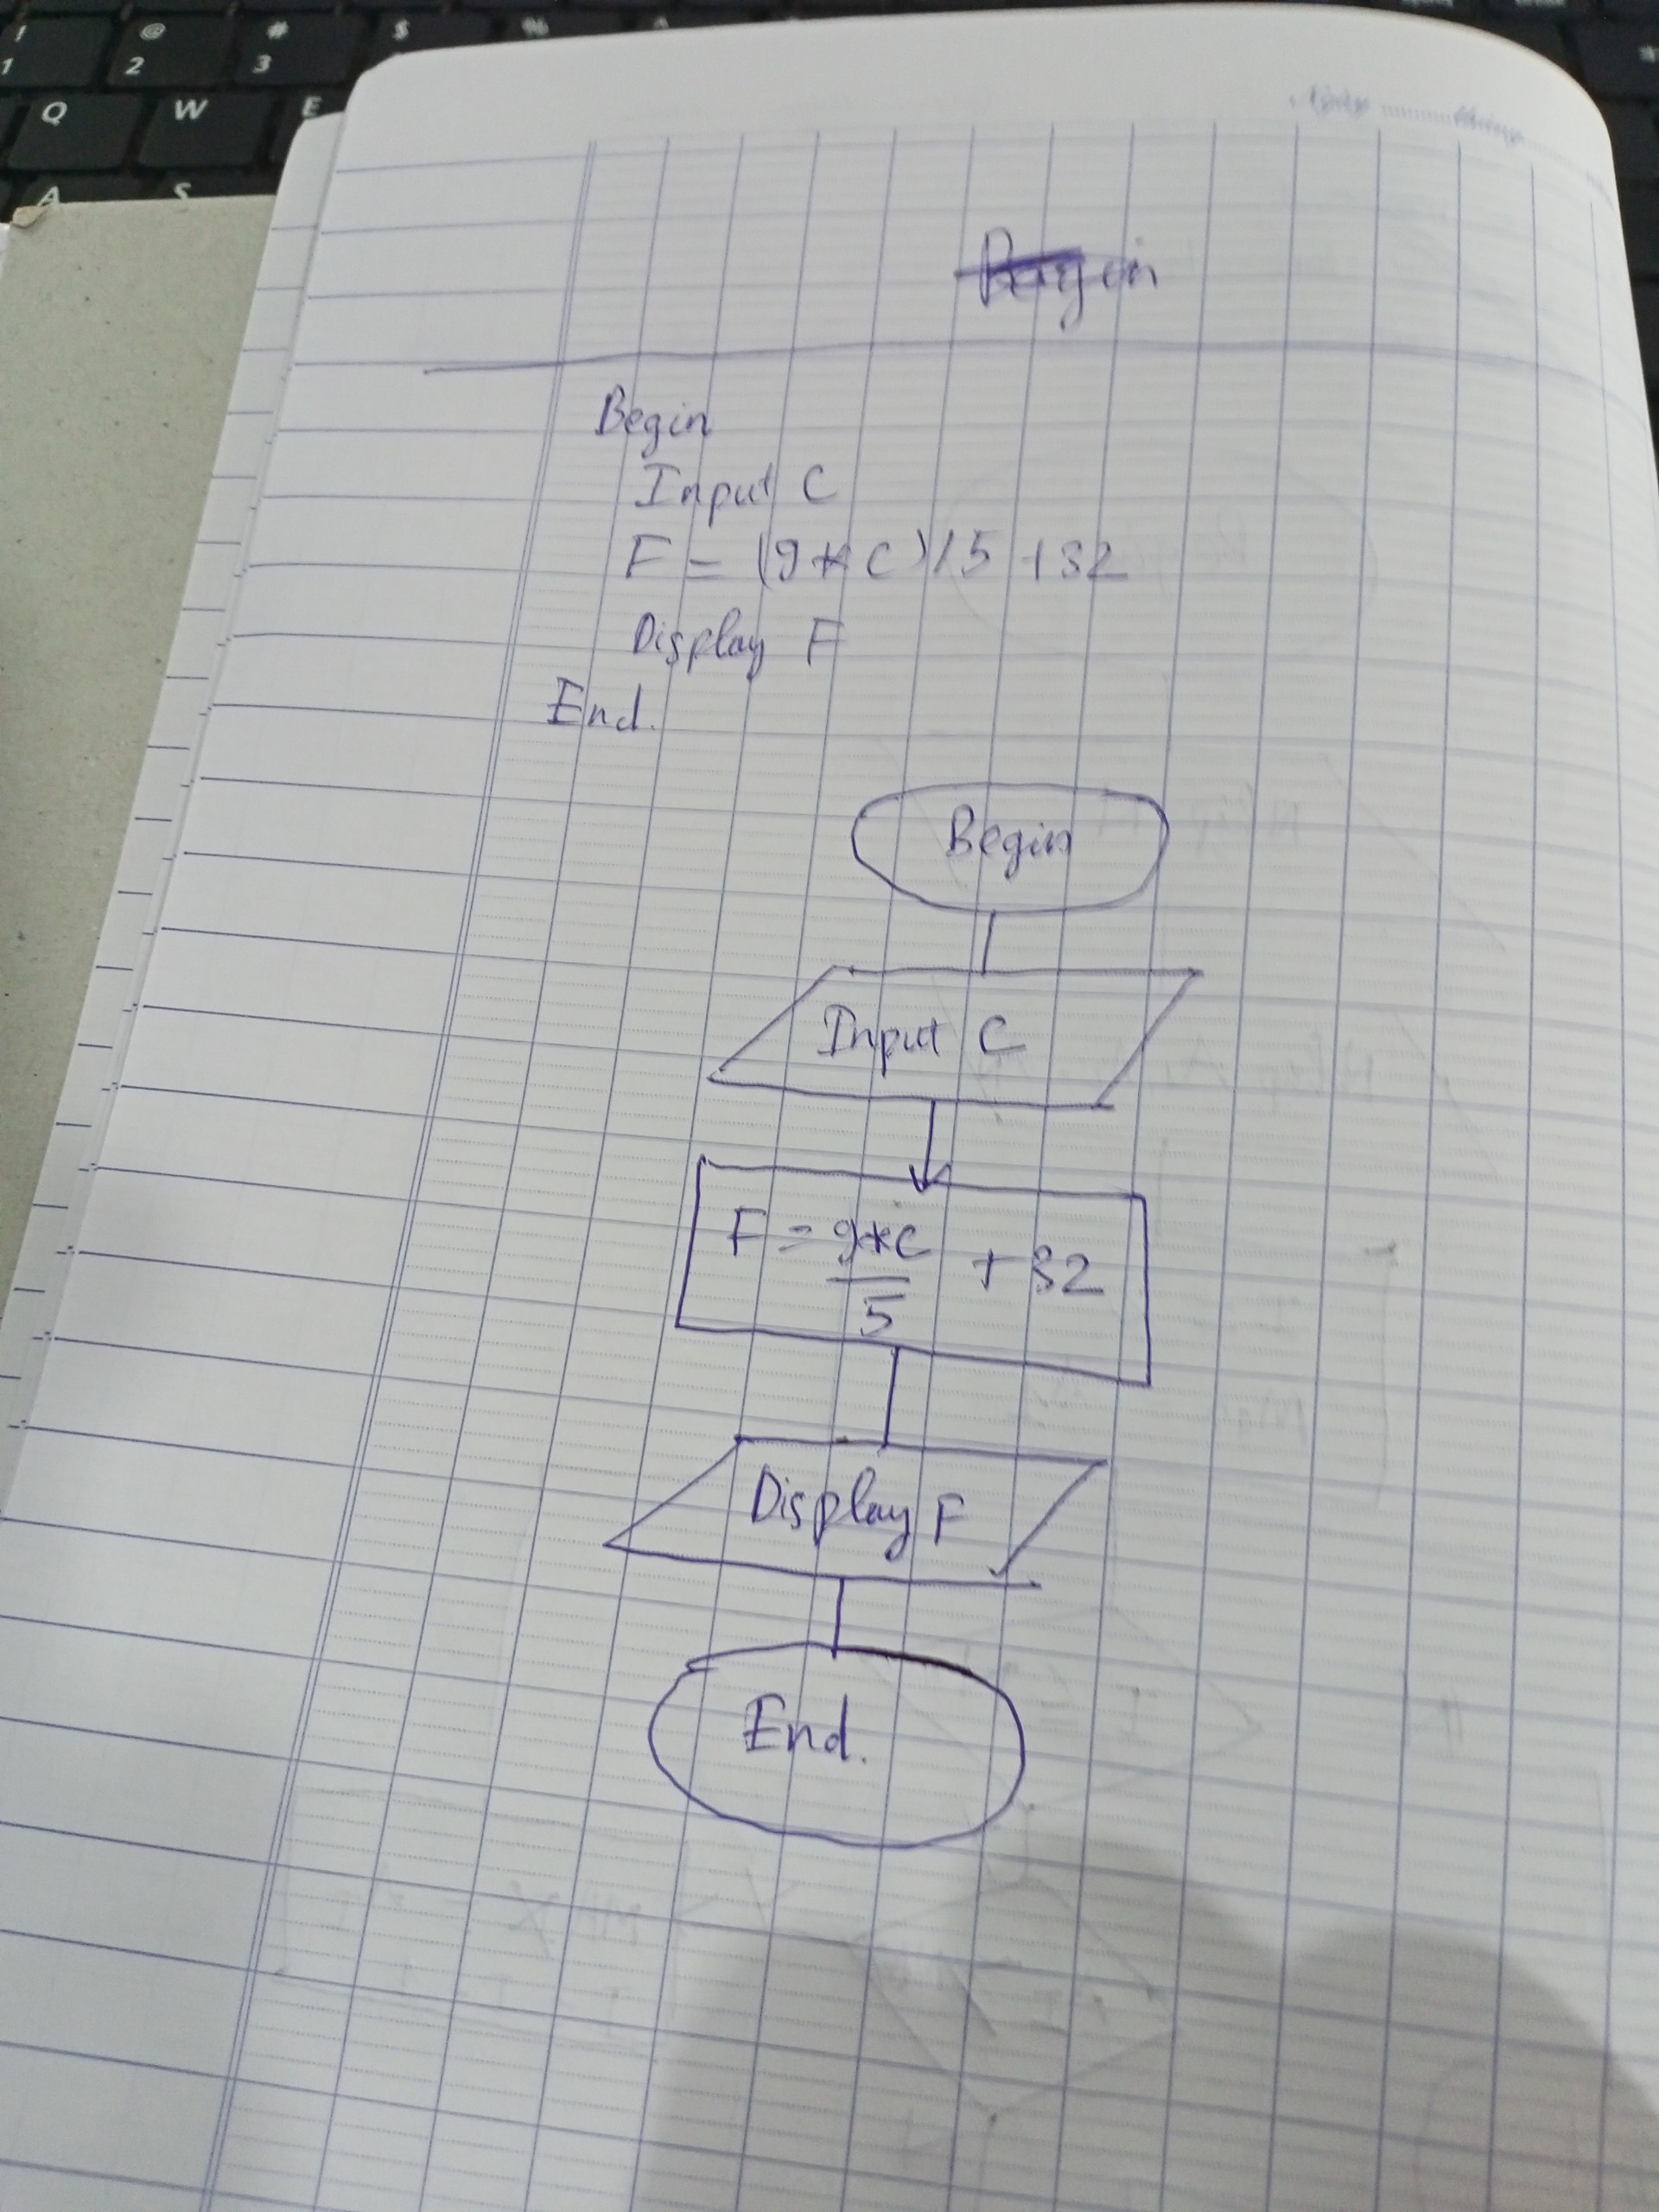 !
1
@
2
#
3
$
%
Q
W
E
A
S
Begin
Input C
F = (9*C)/5 +32
Display F
End.
Begin
Input C
F = 9*C
5
+ 32
Display F
End.